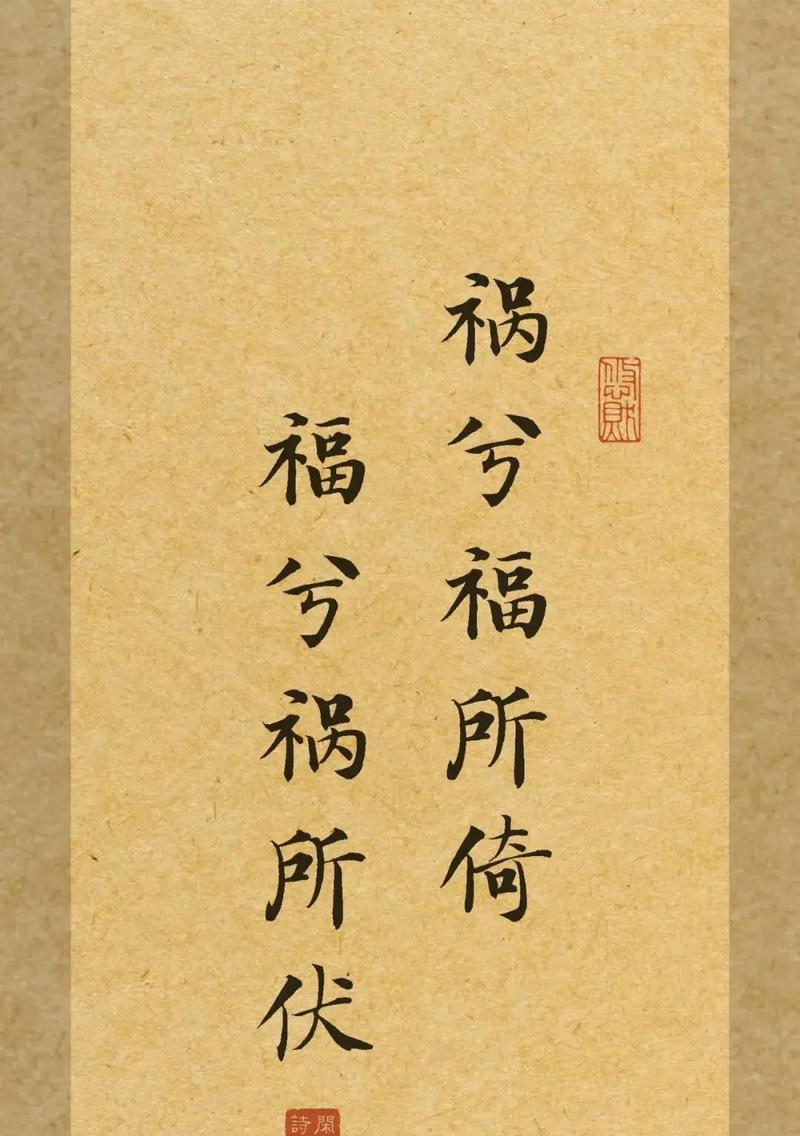 祸兮福所倚
福兮祸所伏
閑詩